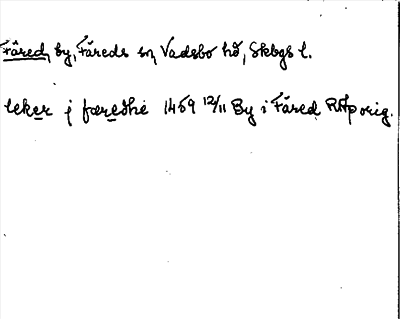 Fåred, by, Fåreds sn, Vadsbo hd, Skbgs l.
leker j færedhe 1459 12/11 By i Fåred RAp orig.